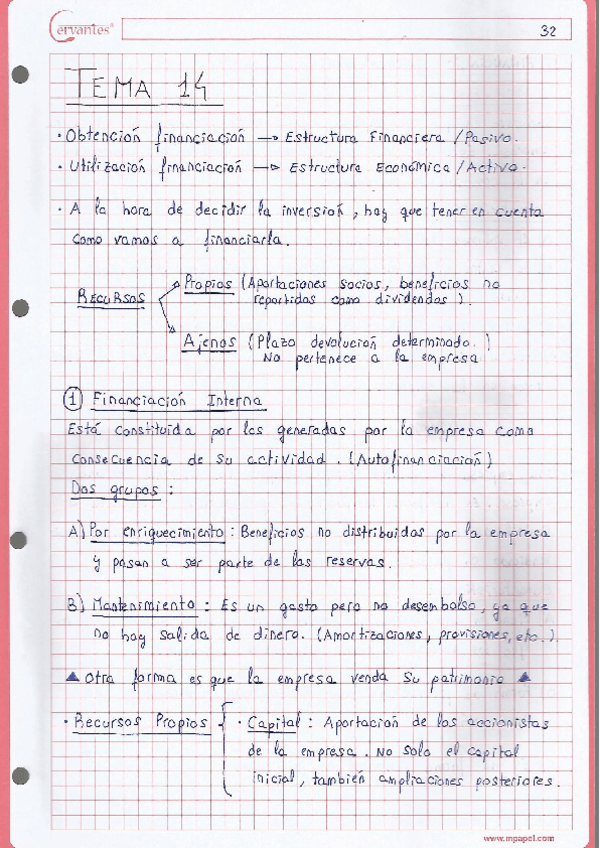 Cervantes®
32
TEMA 14
· Obtención financiación → Estructura Financiera / Pasivo.
· Utilización financiación → Estructura Económica / Activo.
· A la hora de decidir la inversión, hay que tener en cuenta
como vamos a financiarla.
RECURSOS
Propios (Aportaciones socios, beneficios no
repartidos como dividendos).
Ajenos (Plazo devolución determinado.)
No pertenece a la empresa
① Financiación Interna
Está constituida por los generadas por la empresa como
consecuencia de su actividad. (Autofinanciación)
Dos grupos:
A) Por enriquecimiento: Beneficios no distribuidos por la empresa
y pasan a ser parte de las reservas.
B) Mantenimiento: Es un gasto pero no desembolso, ya que
no hay salida de dinero. (Amortizaciones, provisiones, etc.).
▲ Otra forma es que la empresa venda su patrimonio ▲
· Recursos Propios { · Capital: Aportación de los accionistas
de la empresa. No solo el capital
inicial, también ampliaciones posteriores.
www.mpapel.com